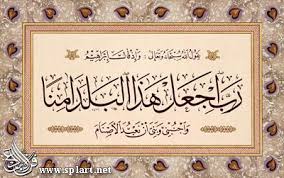 يقول الله سبحانه وتعالى: وإذ قال إبراهيم
رب اجعل هذا البلد آمنا
واجنبني وبني أن نعبد الأصنام
www.splart.net